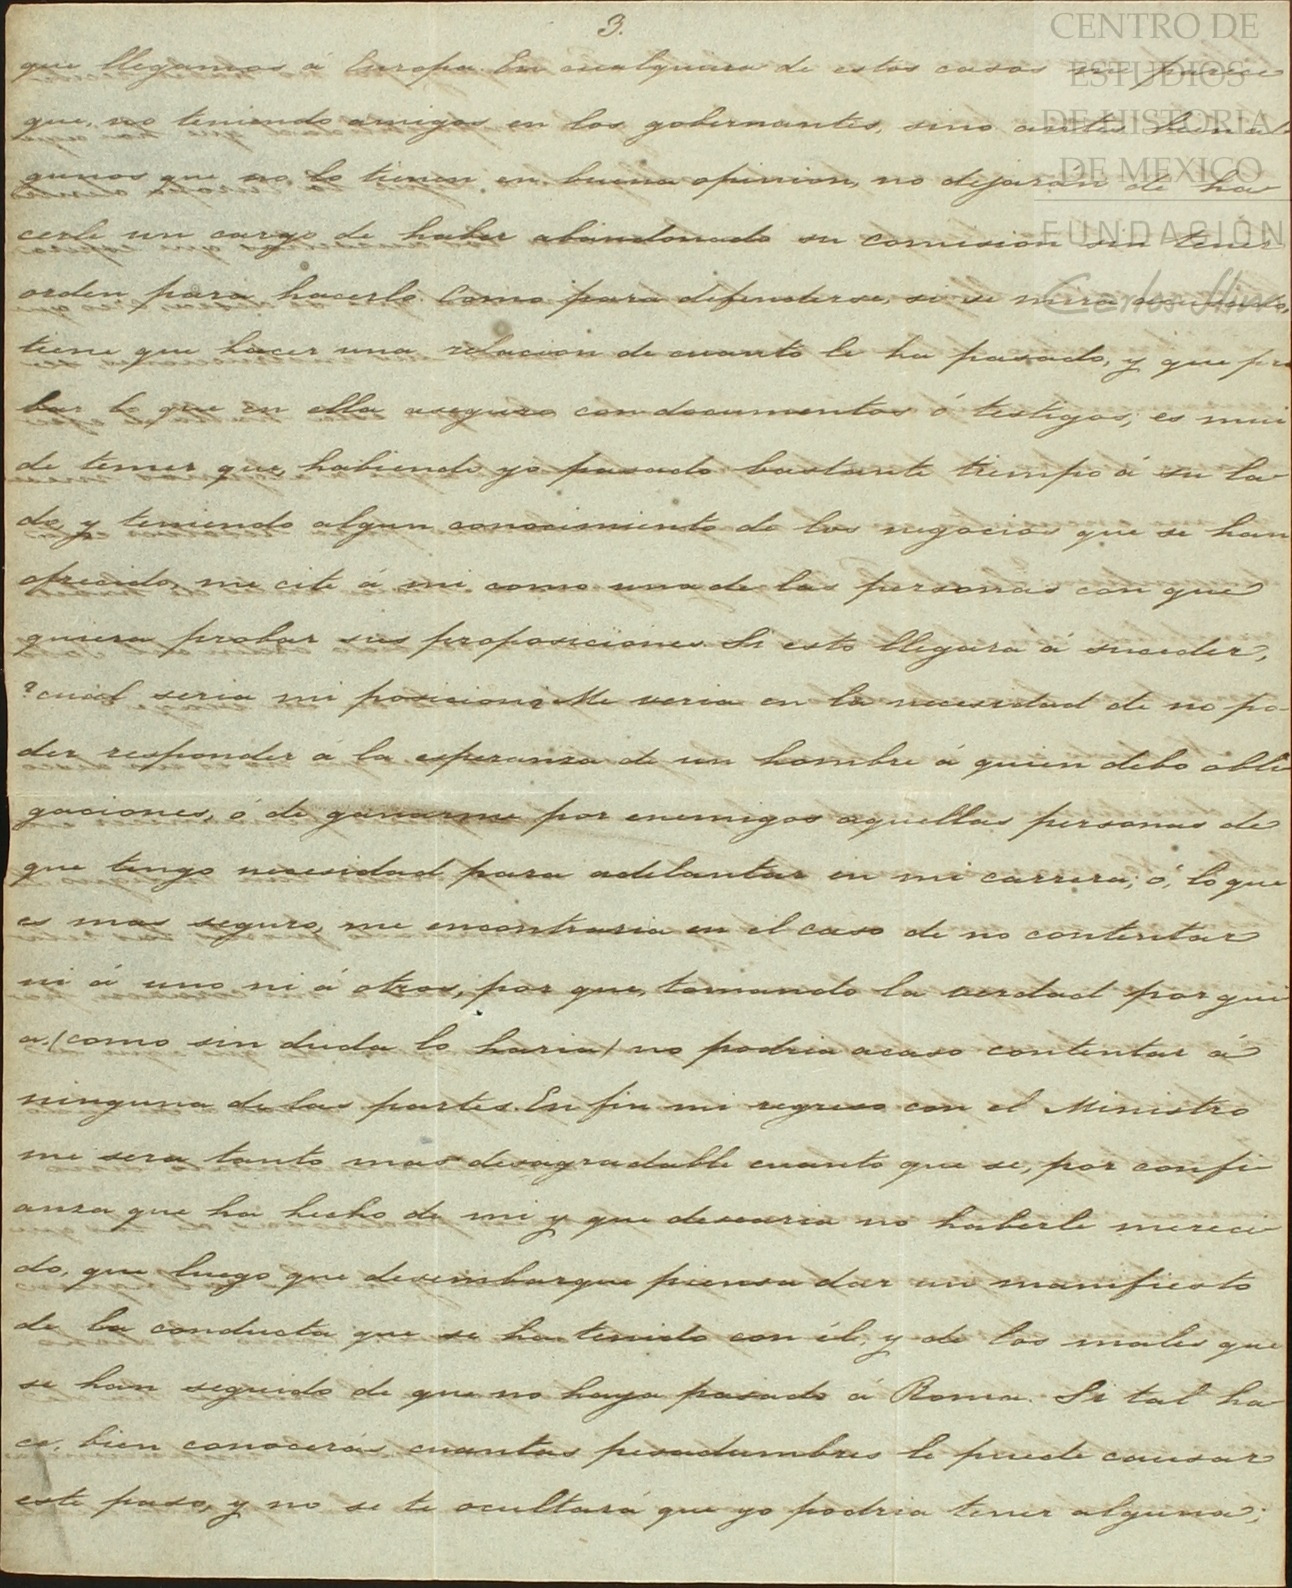 3.
que llegamos á Europa. En cualquiera de estos casos me parece
que, no teniendo amigos en los gobernantes, sino antes bien al
gunos que no lo tienen en buena opinion, no dejarán de ha
cerle un cargo de haber abandonado su comision sin tener
orden para hacerlo. Como para defenderse, si se mira acusado,
tiene que hacer una relacion de cuanto le ha pasado, y que pro
bar lo que en ella asegure con documentos ó testigos; es mui
de temer que, habiendo yo pasado bastante tiempo á su la
do, y teniendo algun conocimiento de los negocios que se han
ofrecido, me cite á mi como una de las personas con que
quiera probar sus proposiciones. Si esto llegara á suceder,
?cual seria mi posicion? Me veria en la necesidad de no po-
der responder á la esperanza de un hombre á quien debo obli
gaciones, ó de ganarme por enemigos aquellas personas de
que tengo necesidad para adelantar en mi carrera; ó, lo que
es mas seguro, me encontraria en el caso de no contentar
ni á uno ni á otros, por que, tomando la verdad por gui
a (como sin duda lo haria) no podria acaso contentar á
ninguna de las partes. En fin mi regreso con el Ministro
me sera tanto mas desagradable cuanto que se, por confi
anza que ha hecho de mi y que desearia no haberle mereci
do, que luego que desembarque piensa dar un manifiesto
de la conducta que se ha tenido con él, y de los males que
se han seguido de que no haya pasado á Roma. Si tal ha
ce, bien conocerás cuantas pesadumbres le puede causar
este paso, y no se te ocultará que yo podria tener alguna;
CENTRO DE
ESTUDIOS
DE HISTORIA
DE MEXICO
FUNDACIÓN
Carlos Slim